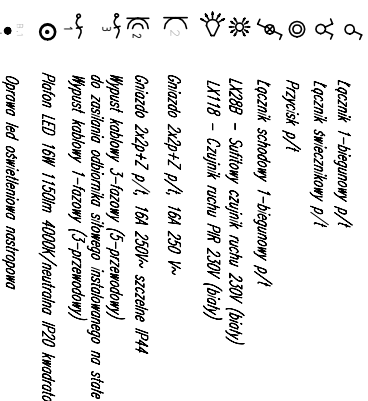 Łącznik 1-biegunowy p/t
Łącznik świecznikowy p/t
Przycisk p/t
Łącznik schodowy 1-biegunowy p/t
LX28B - Sufitowy czujnik ruchu 230V (biały)
LX118 - Czujnik ruchu PIR 230V (biały)
2 Gniazdo 2x2p+Z p/t, 16A 250 V~
2 Gniazdo 2x2p+Z p/t, 16A 250V~ szczelne IP44
3 Wypust kablowy 3-fazowy (5-przewodowy)
do zasilania odbiornika siłowego instalowanego na stałe
1 Wypust kablowy 1-fazowy (3-przewodowy)
Plafon LED 18W 1150lm 4000K/neutralna IP20 kwadrato
Oprawa led oświetleniowa nastropowa